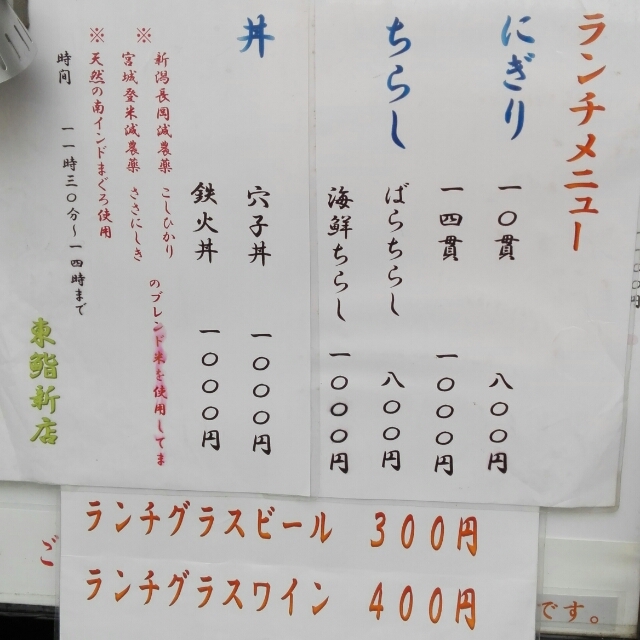 ランチメニュー
にぎり
一〇貫 八〇〇円
一四貫 一〇〇〇円
ちらし
ばらちらし 八〇〇円
海鮮ちらし 一〇〇〇円
丼
穴子丼 一〇〇〇円
鉄火丼 一〇〇〇円
※ 新潟長岡減農薬 こしひかり
宮城登米減農薬 ささにしき
のブレンド米を使用してま
※ 天然の南インドまぐろ使用
時間 一一時三〇分〜一四時まで
東鮨新店
ランチグラスビール 300円
ランチグラスワイン 400円
ご
です。